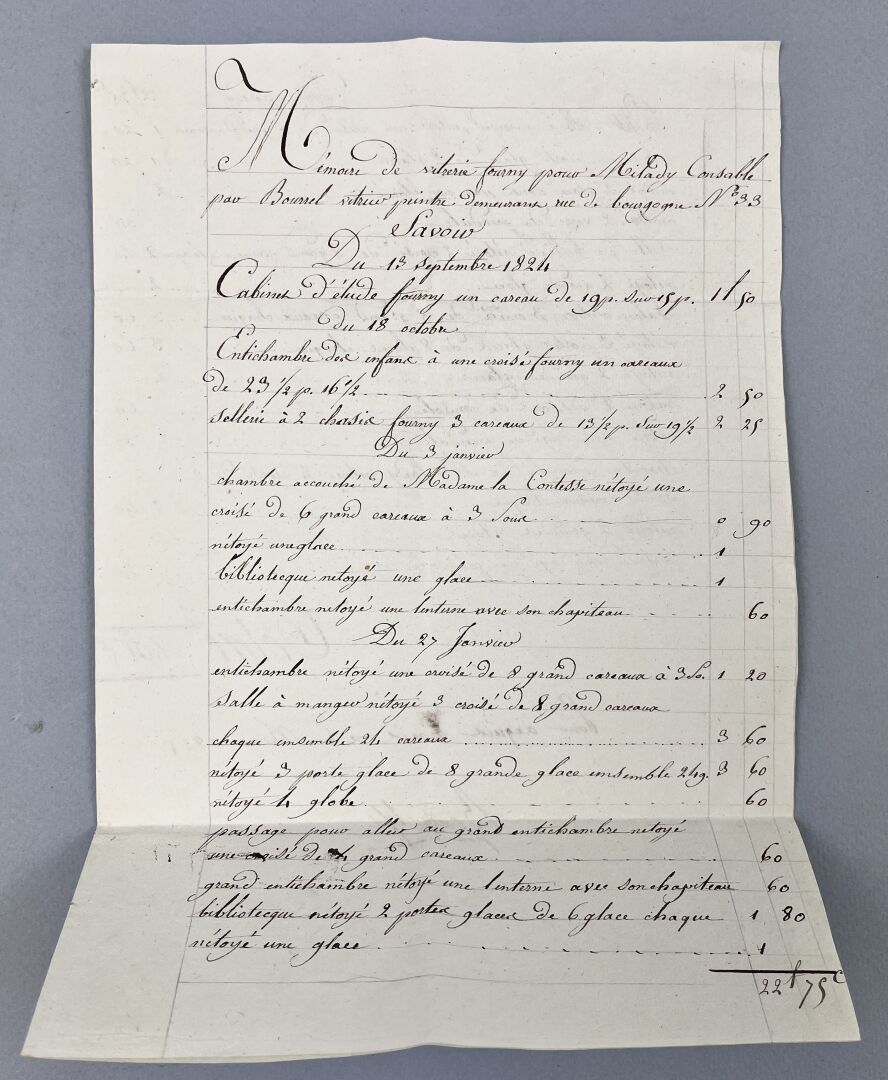 Mémoire de vitrerie fourny pour Milady Consable
par Bourrel vitrier peintre demeurant rue de bourgogne N° 33
Savoir
Du 13 septembre 1824
Cabinet d'étude fourny un careau de 19p. sur 15p. 1f 50
du 18 octobre
Entichambre des enfant à une croisé fourny un careaux
de 23 1/2 p. 16 1/2 2 50
sellerie à 2 chasis fourny 3 careaux de 13 1/2 p. sur 19 1/2 2 25
Du 3 janvier
chambre accouché de Madame la Contesse nétoyé une
croisé de 6 grand careaux à 3 Sous 0 90
nétoyé une glace 1
bibliotecque netoyé une glace 1
entichambre netoyé une lenterne avec son chapiteau 60
Du 27 Janvier
entichambre nétoyé une croisé de 8 grand careaux à 3 So. 1 20
salle à manger nétoyé 3 croisé de 8 grand careaux
chaque ensemble 24 careaux 3 60
nétoyé 3 porte glace de 8 grande glace ensemble 24g. 3 60
nétoyé 4 globe 60
passage pour aller au grand entichambre netoyé
une croisé de 4 grand careaux 60
grand entichambre nétoyé une lenterne avec son chapiteau 60
bibliotecque nétoyé 2 portes glaces de 6 glace chaque 1 80
nétoyé une glace 1
22f 75c